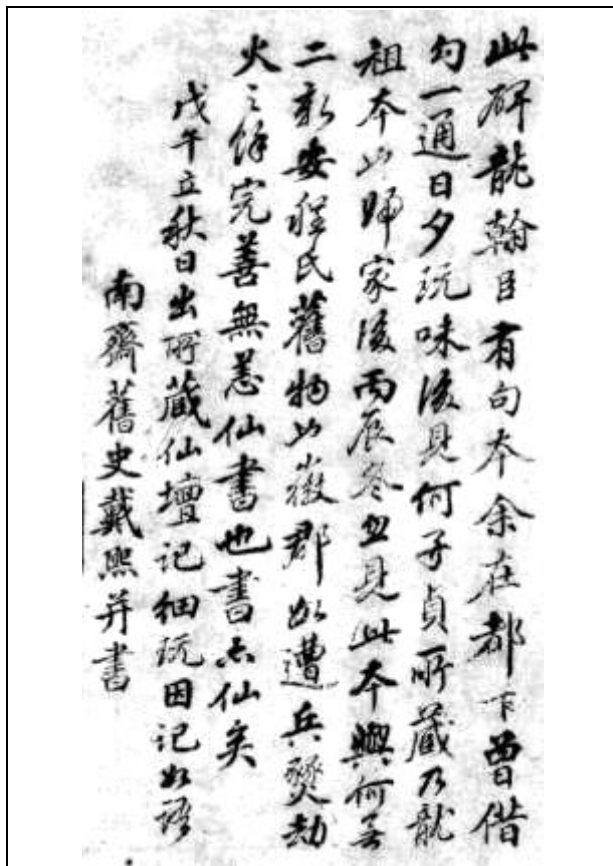 此碑龍翰臣有句本余在都下曾借
勾一通日夕玩味後見何子貞所藏乃龍
祖本此歸家後丙辰冬忽見此本與何無
二新安程氏舊物以徽郡如遭兵燹劫
火之餘完善無恙仙書也書亦仙矣
戊午立秋日出所藏仙壇記細玩因記如語
南齋舊史戴熙并書